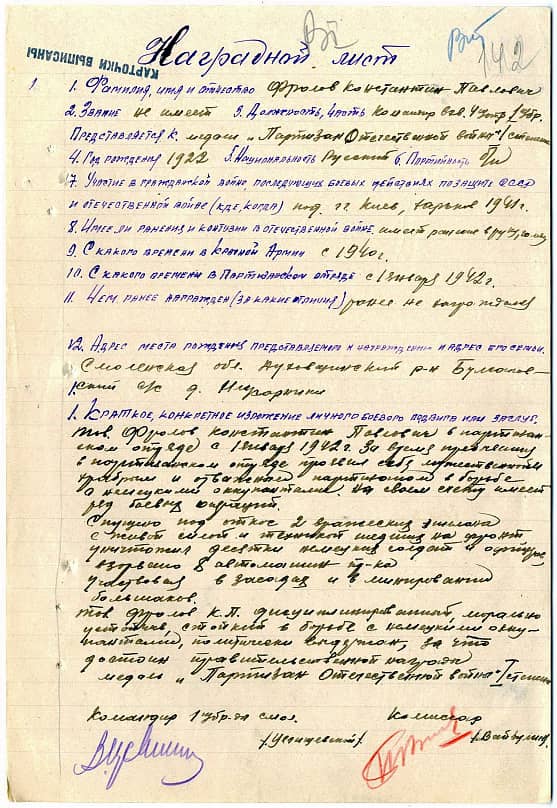 КАРТОЧКИ ВЫПИСАНЫ
142
Наградной лист
1. Фамилия, имя и отчество Фролов Константин Павлович
2. Звание не имеет 3. Должность, часть командир взв. 4 1 убр.
Представляется к медали „Партизан Отечественной войны" I степени
4. Год рождения 1922 5. Национальность Русский 6. Партийность
7. Участие в гражданской войне, последующих боевых действиях по защите СССР
и отечественной войне (где, когда) под г.г. Киев, Харьков 1941 г.
8. Имеет ли ранения и контузии в отечественной войне. имеет ранение в руку,
9. С какого времени в Красной Армии с 1940 г.
10. С какого времени в Партизанском отряде с 1 января 1942 г.
11. Чем ранее награжден (за какие отличия) ранее не награждался
12. Адрес места рождения представляемого к награждению и адрес его семьи.
Смоленская обл. Духовщинский р-н
с/с д.
1. Краткое, конкретное изложение личного боевого подвига или заслуг.
Тов. Фролов Константин Павлович в партизан-
ском отряде с 1 января 1942 г. За время пребывания
в партизанском отряде проявил себя мужественным
храбрым и отважным партизаном в борьбе
с немецкими оккупантами. На своем счету имеет
ряд боевых операций.
Спущено под откос 2 вражеских эшелона
с живой силой и техникой шедших на фронт
уничтожил десятки немецких солдат и офицеров,
взорвано 8 автомашин пр-ка
участвовал в засадах и в минировании
большаков.
Тов. Фролов К.П. дисциплинированный, морально
устойчив, стойкий в борьбе с немецкими окку-
пантами, политически выдержан, за что
достоин правительственной награды
медаль „Партизан Отечественной войны" I степени
Командир 1 убр-ды смол. Комиссар